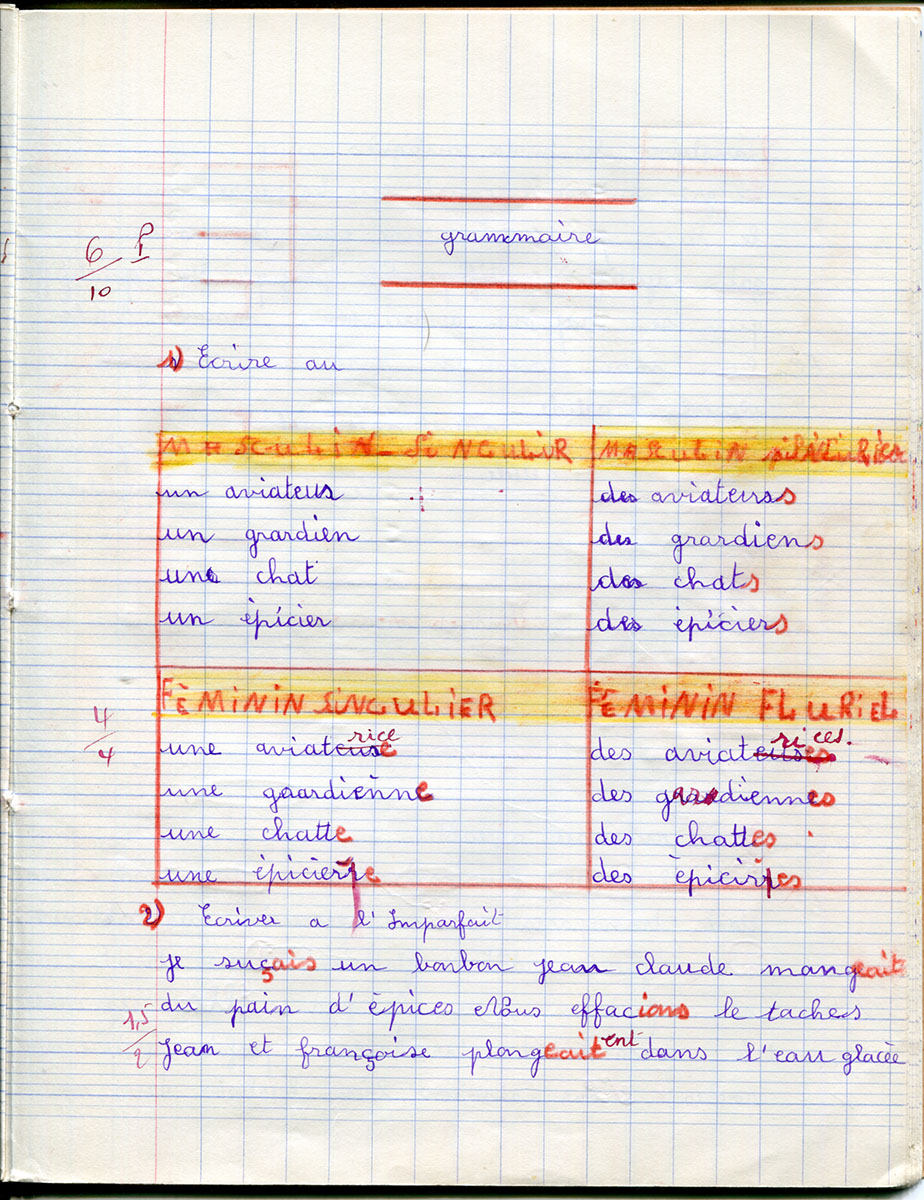 6
10
grammaire
1) Ecrire au
MASCULIN SINGULIER MASCULIN
un aviateur des aviateurs
un grardien des grardiens
un chat des chats
un èpicier des èpiciers
FÈMININ SINGULIER FÈMININ FLURIEL
4
4
rice rices.
une aviateuse des aviateuses
une gaardiènne des gardiennes
une chatte des chattes
une èpicière des èpicires
2) Ecriver a l'Imparfait
je suçais un bonbon jean claude mangeait
1,5
2
du pain d'èpices Nous effacions le taches
ent
Jean et françoise plongeait dans l'eau glacèe